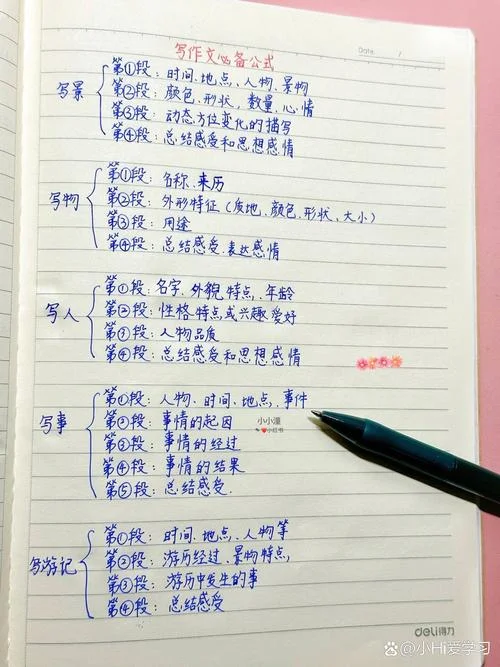 Date: /
写作文必备公式
写景
第①段：时间、地点、人物、景物
第②段：颜色、形状，数量、心情
第③段：动态方位变化的描写
第④段：总结感受和思想感情
写物
第①段：名称、来历
第②段：外形特征（质地、颜色、形状、大小）
第③段：用途
第④段：总结感受、表达感情
写人
第①段：名字、外貌、特点、年龄
第②段：性格、特点或兴趣爱好
第③段：人物品质
第④段：总结感受和思想感情
写事
第①段：人物、时间、地点、事件
第②段：事情的起因
第③段：事情的经过
第④段：事情的结果
第⑤段：总结感受.
小小漫
小红书
写游记
第①段：时间、地点、人物等
第②段：游历经过、景物特点,
第③段：游历中发生的事
第④段：总结感受
deli得力
@小Hi爱学习